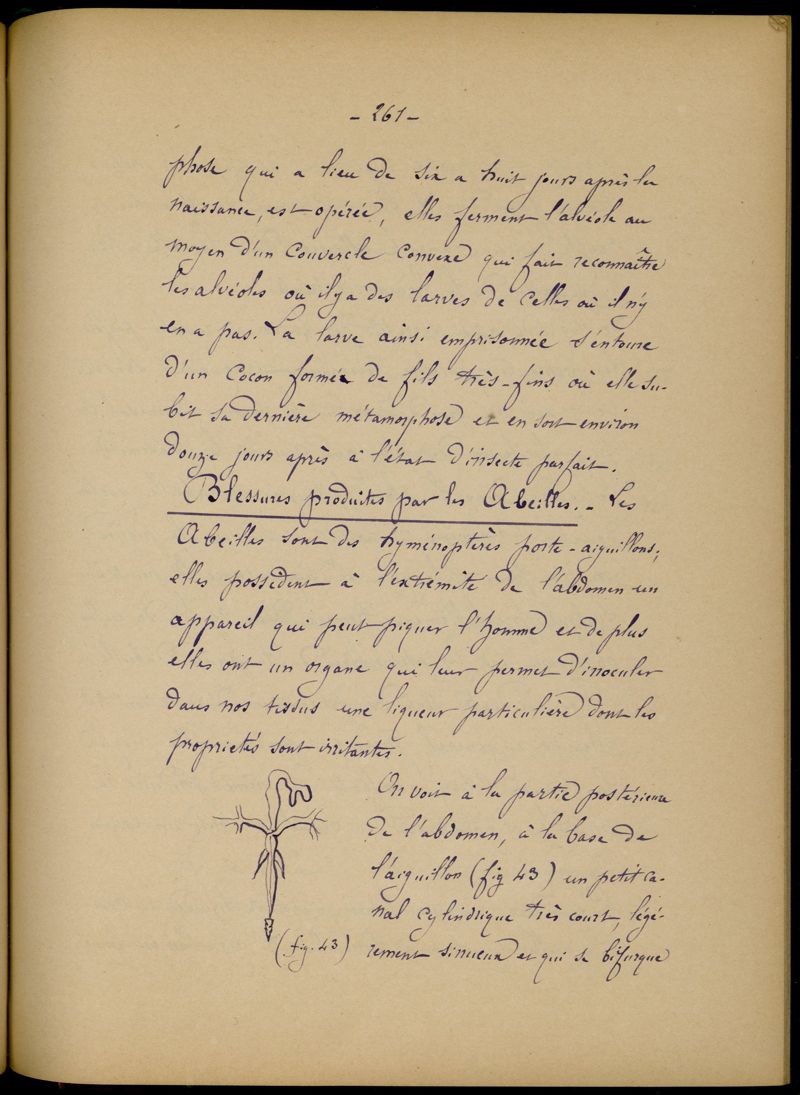 - 261 -
phose qui a lieu de six a huit jours après la
naissance, est opérée, elles ferment l'alvéole au
moyen d'un couvercle convexe qui fait reconnaître
les alvéoles où il y a des larves de celles où il n'y
en a pas. La larve ainsi emprisonnée s'entoure
d'un cocon formée de fils très-fins où elle su-
bit sa dernière métamorphose et en sort environ
douze jours après à l'état d'insecte parfait.
Blessures produites par les Abeilles. - Les
Abeilles sont des hyménoptères porte-aiguillons;
elles possèdent à l'extrémité de l'abdomen un
appareil qui peut piquer l'homme et de plus
elles ont un organe qui leur permet d'inoculer
dans nos tissus une liqueur particulière dont les
proprietés sont irritantes.
On voit à la partie postérieure
de l'abdomen, à la base de
l'aiguillon (fig 43) un petit ca-
nal cylindrique très court, légé-
(fig. 43) rement sinueux et qui se bifurque